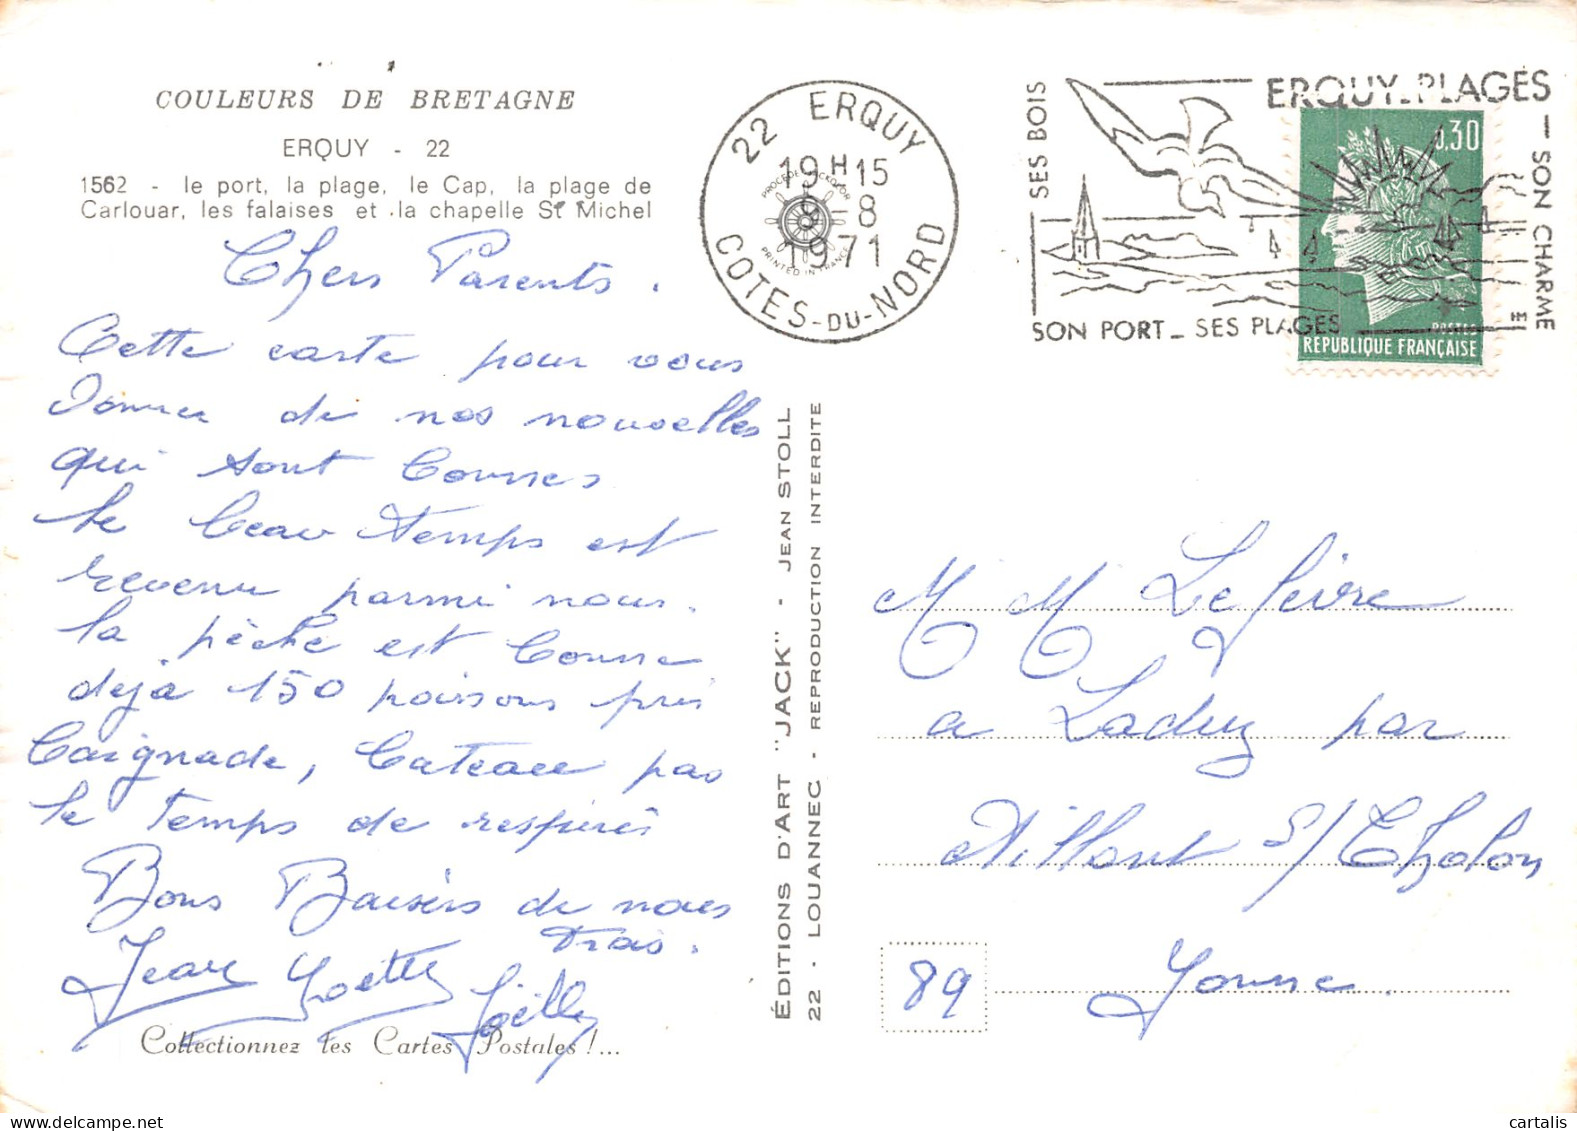 COULEURS DE BRETAGNE
ERQUY - 22
1562 - le port, la plage, le Cap, la plage de
Carlouar, les falaises et la chapelle St Michel
Chers Parents.
Cette carte pour vous
donner de nos nouvelles
qui sont bonnes
le beau temps est
revenu parmi nous.
la pêche est bonne
déjà 150 poissons pris
Baignade, Bateau pas
le temps de respirer
Bons Baisers de nous
trois.
Jean Yvette Joëlle
Collectionnez les Cartes Postales !...
ÉDITIONS D'ART "JACK" - JEAN STOLL
22 - LOUANNEC - REPRODUCTION INTERDITE
22 ERQUY
19H15
9-8
1971
COTES-DU-NORD
PROCÉDÉ JACKOLOR
PRINTED IN FRANCE
SES BOIS
ERQUY-PLAGES
SON CHARME
SON PORT - SES PLAGES
0,30
POSTES
REPUBLIQUE FRANÇAISE
M M Lefèvre
a Laduz par
Aillant s/ Tholon
89 Yonne.
cartalis